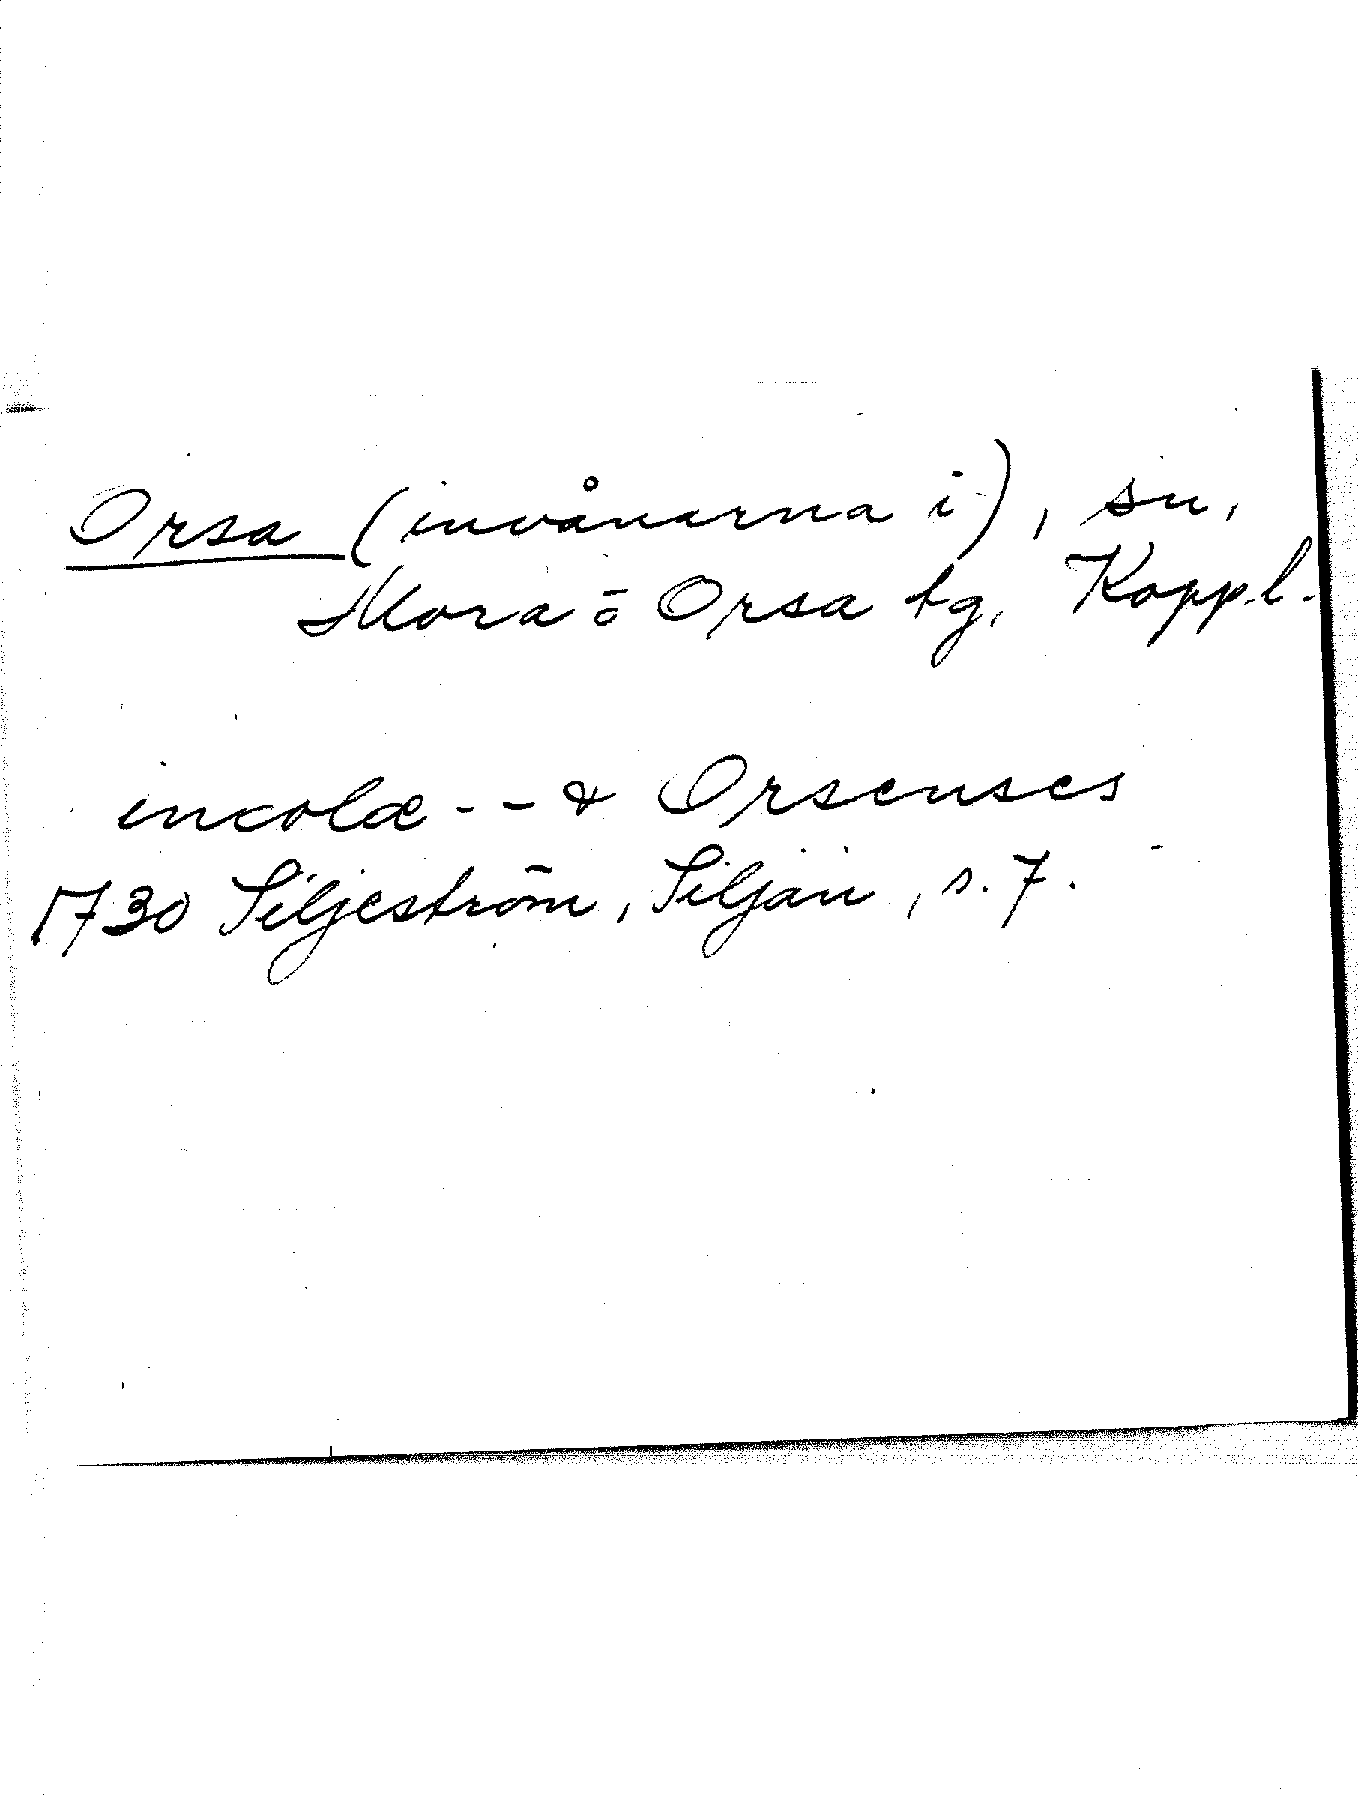 Orsa (invånarna i), sn,
Mora o Orsa tg, Koppl.
incolæ - - & Orsenses
1730 Siljeström, Siljan, s. 7.